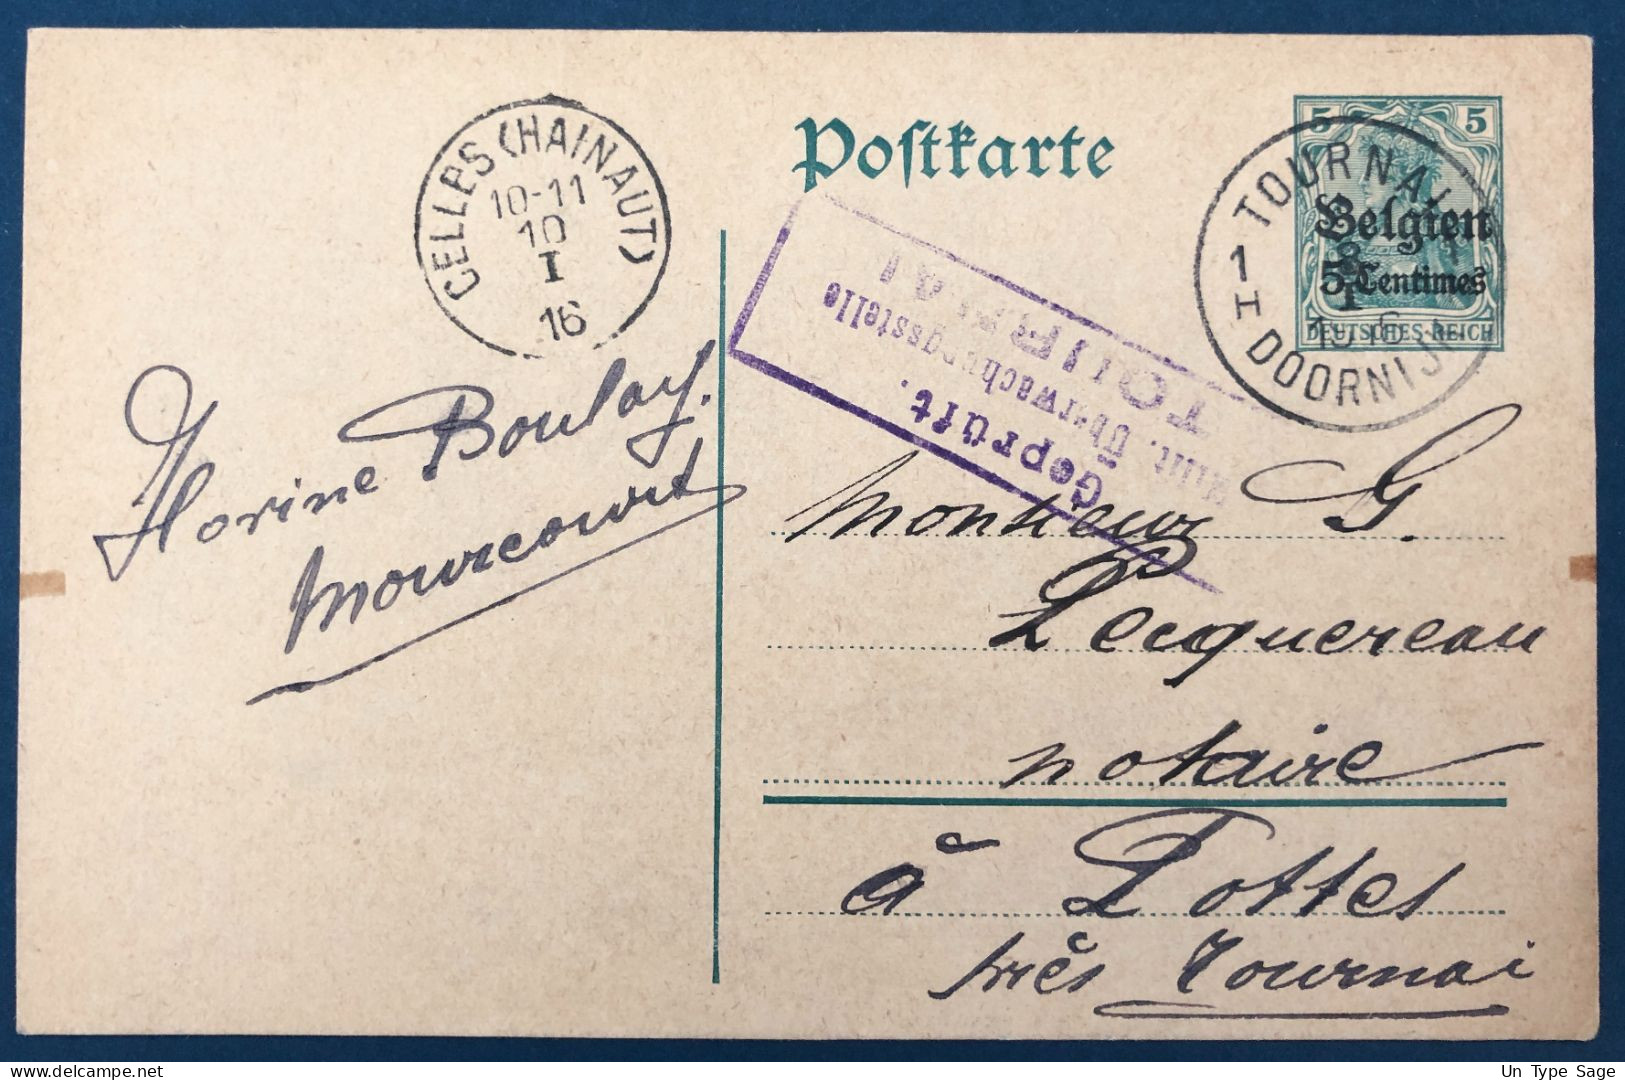 CELLES (HAINAUT)
10-11
10
I
16
Postkarte
5 5
Belgien
5 Centimes
DEUTSCHES REICH
TOURNAI
1 I
DOORNIJK
Geprüft.
Mil. Überwachungsstelle
Florine Boulay.
Mourcourt
Monsieur G.
Lecquereau
notaire
à Pottes
près Tournai
Un Type Sage